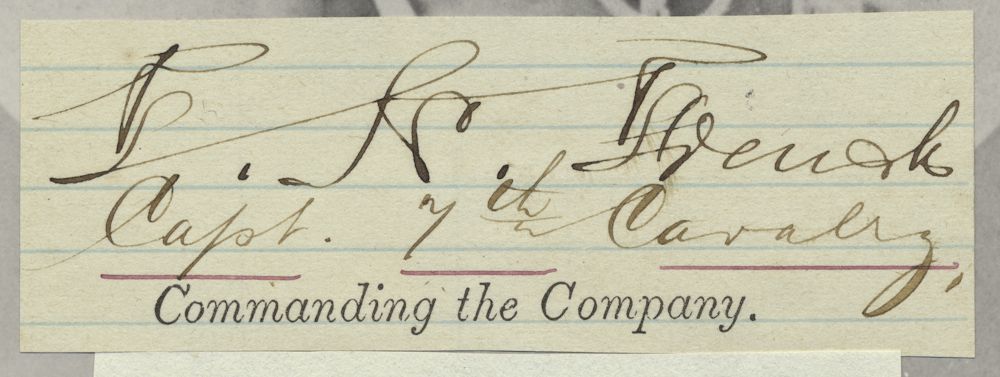 T. H. French
Capt. 7th Cavalry,
Commanding the Company.